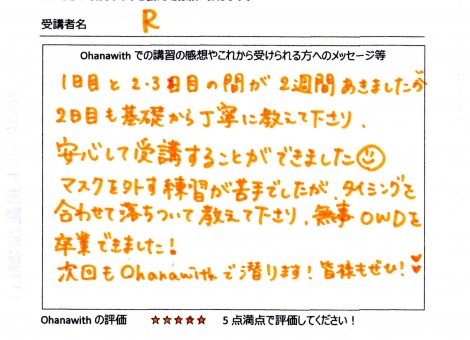 受講者名 R
Ohanawith での講習の感想やこれから受けられる方へのメッセージ等
1日目と2・3日目の間が2週間あきましたが
2日目も基礎から丁寧に教えて下さり、
安心して受講することができました☺
マスクを外す練習が苦手でしたが、タイミングを
合わせて落ちついて教えて下さり、無事OWDを
卒業できました!
次回もOhanawithで潜ります!皆様もぜひ!♥♥
Ohanawith の評価 ★★★★★ 5 点満点で評価してください!